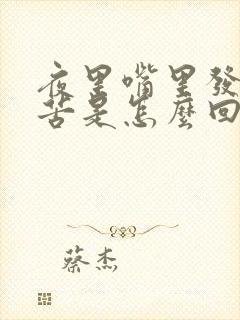 夜里嘴里發
苦是怎麼回
蔡杰